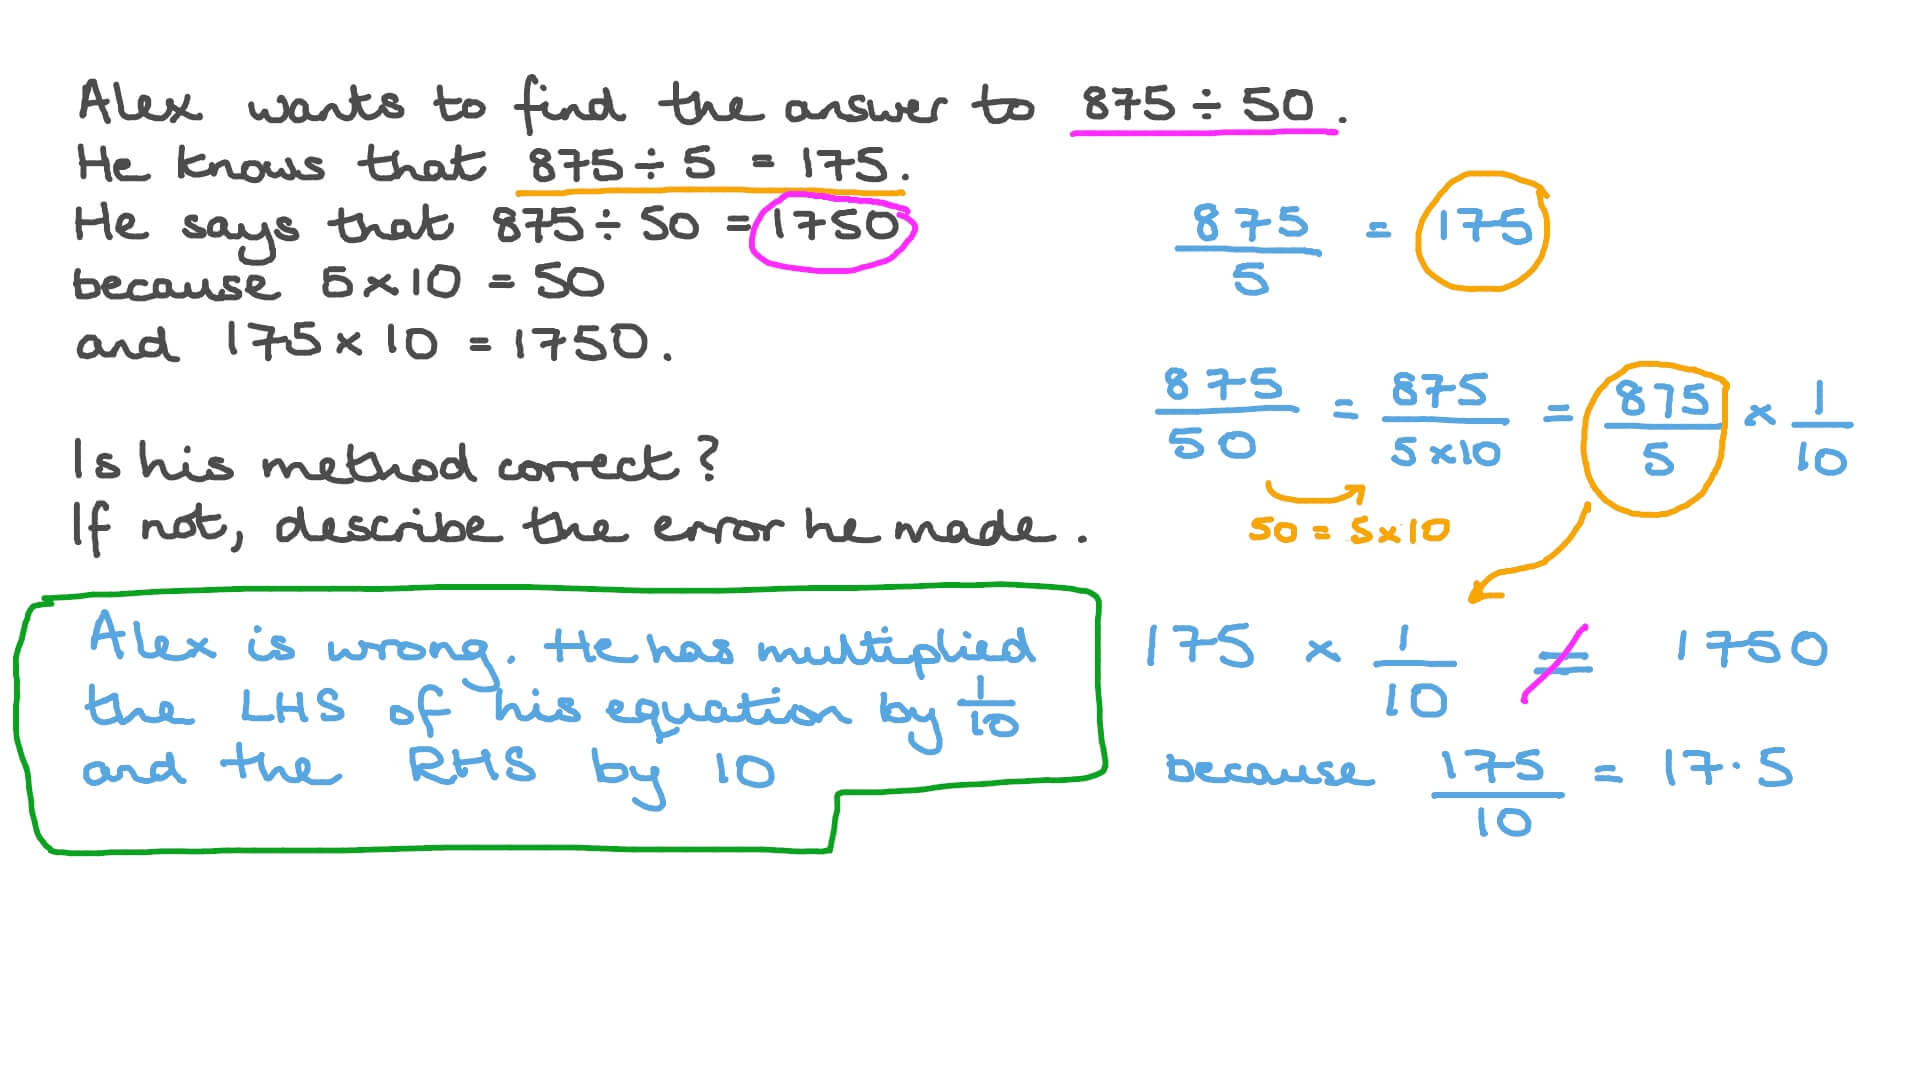 Alex wants to find the answer to 875 ÷ 50.
He knows that 875 ÷ 5 = 175.
He says that 875 ÷ 50 = 1750
because 5 × 10 = 50
and 175 × 10 = 1750.
Is his method correct?
If not, describe the error he made.
Alex is wrong. He has multiplied
the LHS of his equation by 1/10
and the RHS by 10
875/5 = 175
875/50 = 875/5×10 = 875/5 × 1/10
50 = 5×10
175 × 1/10 ≠ 1750
because 175/10 = 17·5